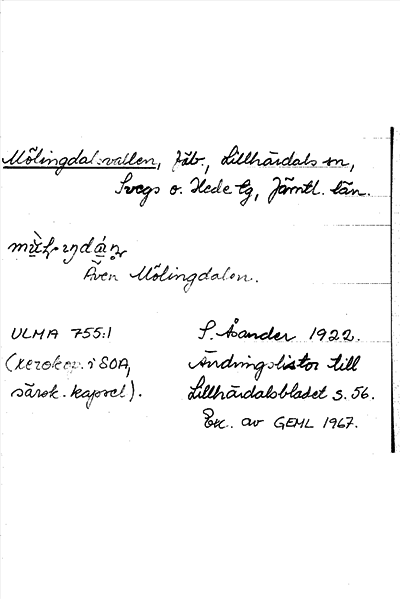 Mölingdalsvallen, fäb., Lillhärdals sn,
Svegs o. Hede tg, Jämtl. län.
Även Mölingdalen.
ULMA 755:1 S. Åsander 1922.
(xerokop. i SOA, Ändringslistor till
särsk. kapsel). Lillhärdalsbladet s. 56.
Exc. av GEML 1967.